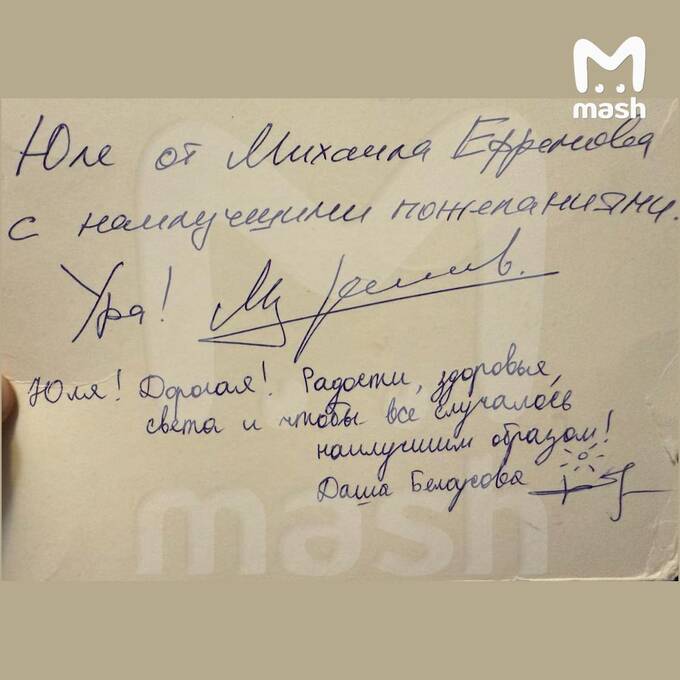 mash
Юле от Михаила Ефремова
с наилучшими пожеланиями.
Ура!
Юля! Дорогая! Радости, здоровья,
света и чтобы все случалось
наилучшим образом!
Даша Белоусова
mash